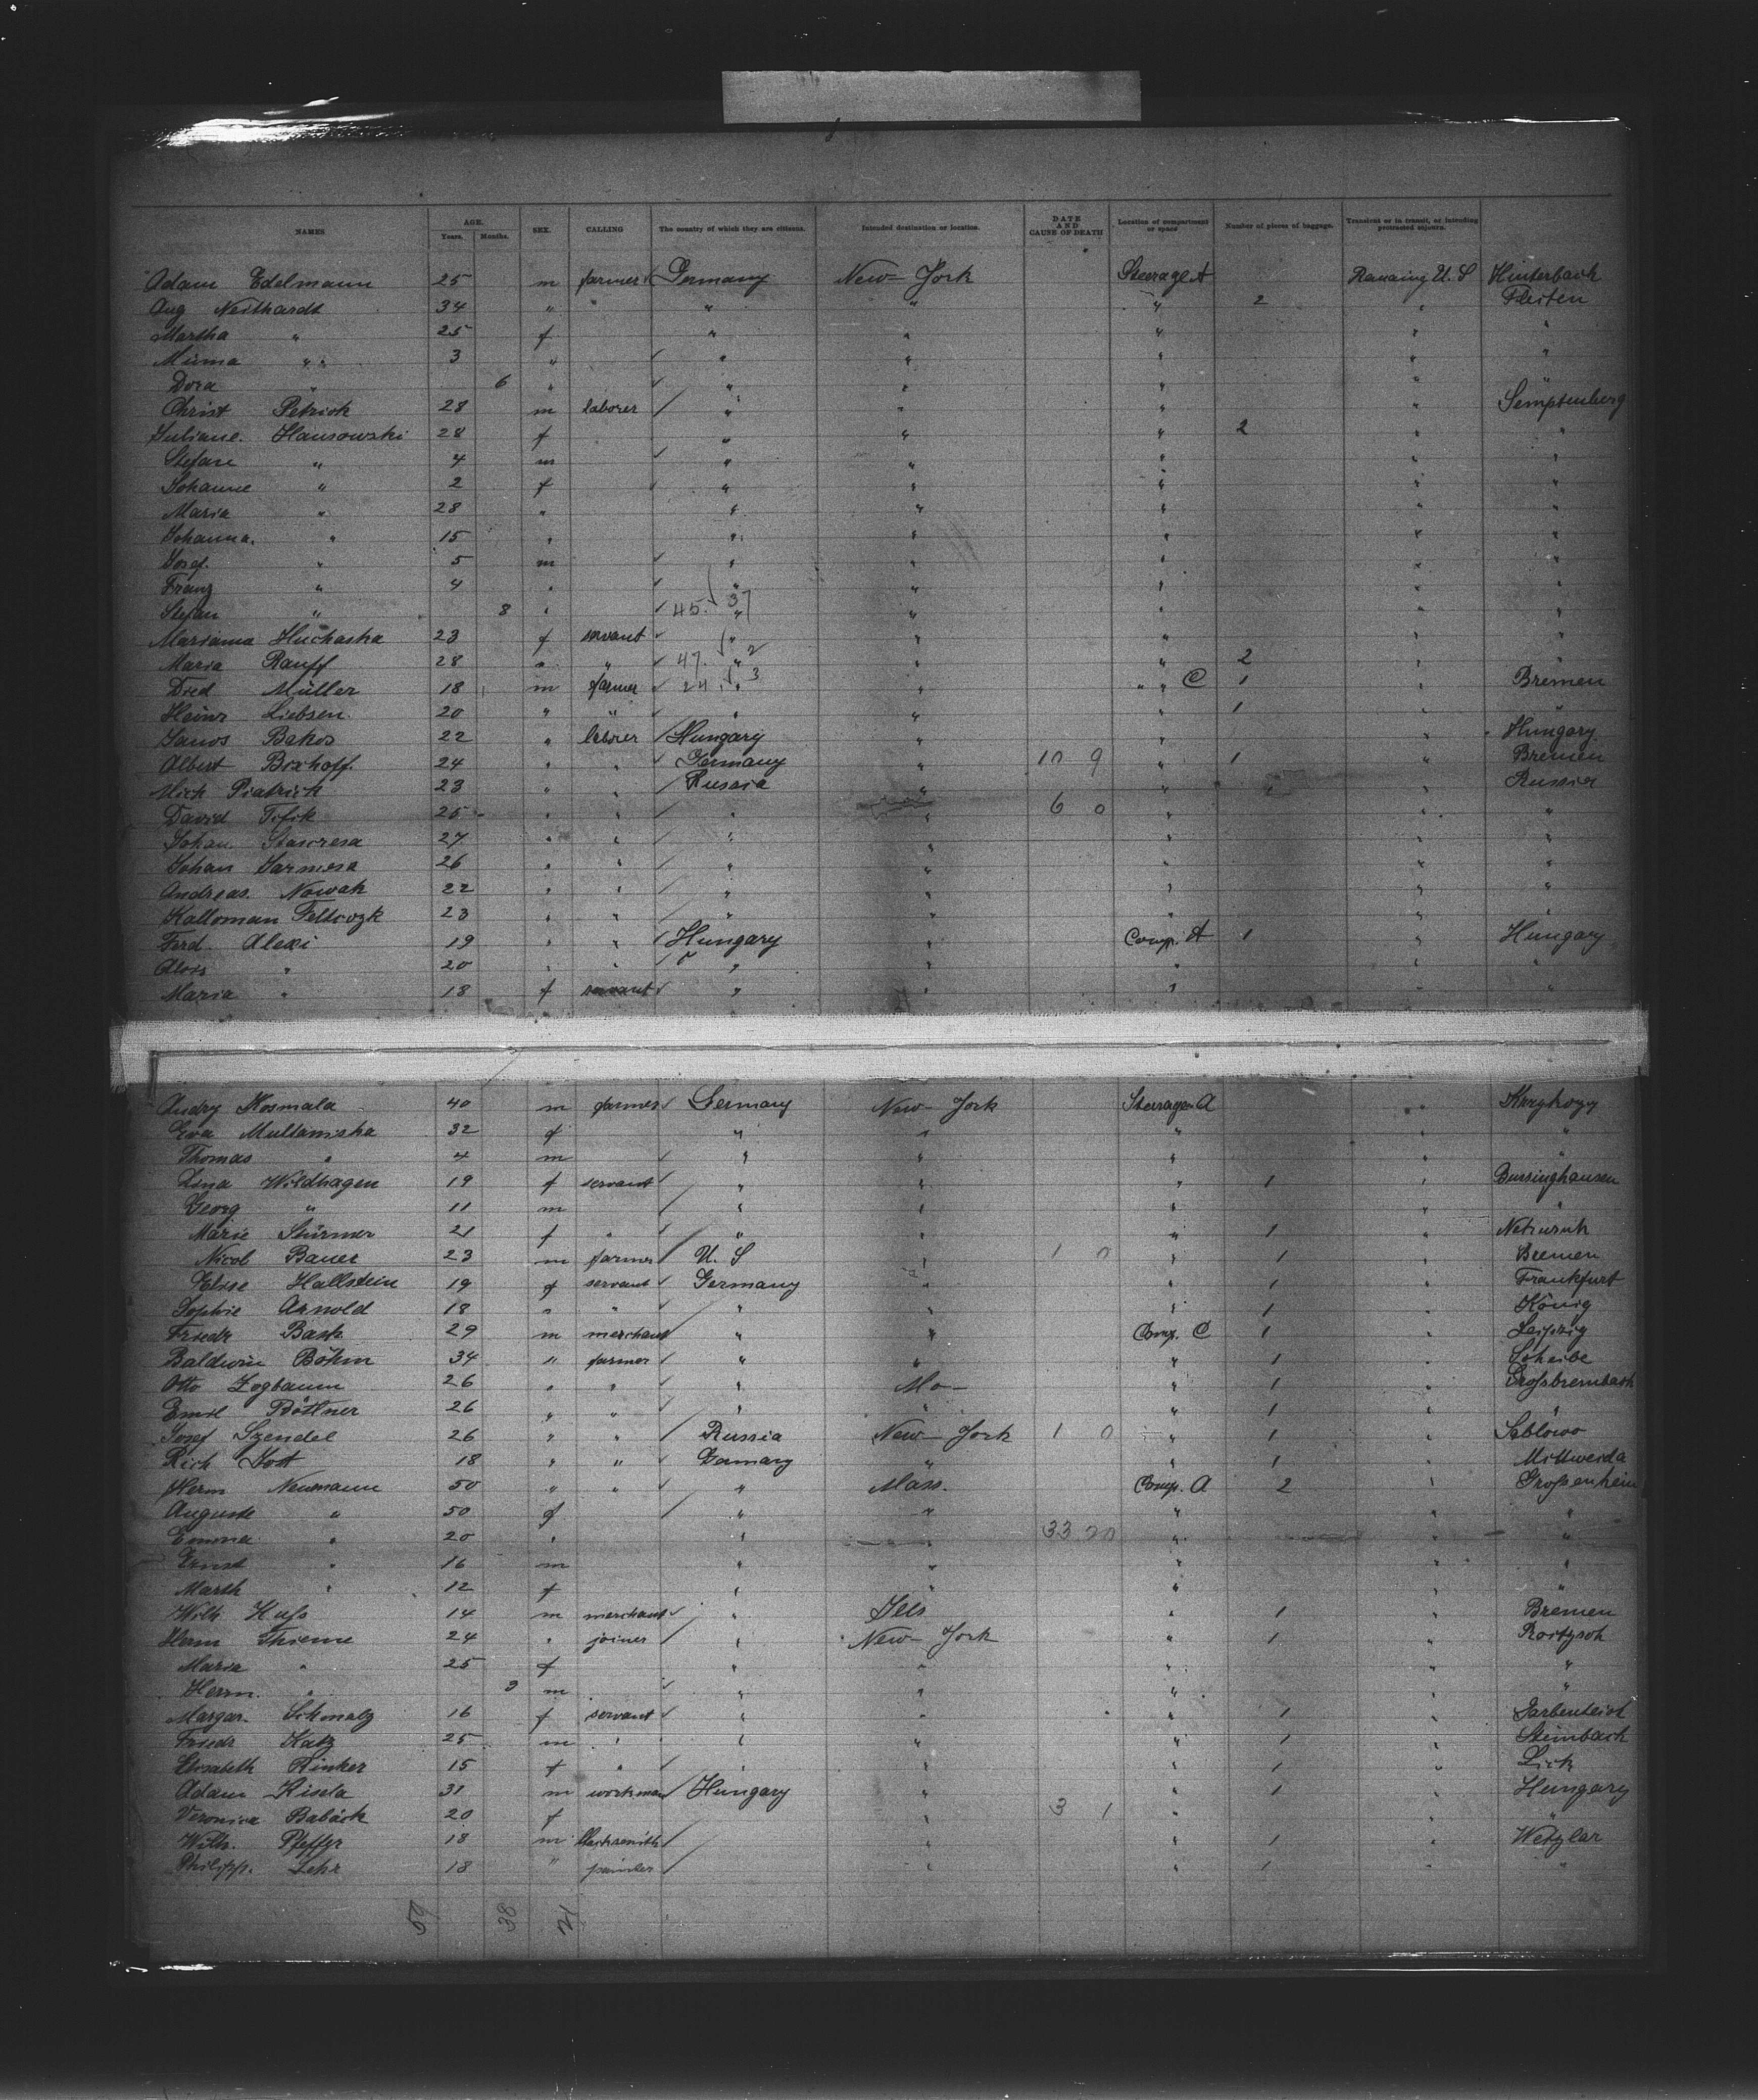 NAMES AGE. Years. Months. SEX. CALLING The country of which they are citizens. Intended destination or location. DATE AND CAUSE OF DEATH Location of compartment or space Number of pieces of baggage. Transient or in transit, or intending protracted sojourn.
Adam Edelmann 25 m farmer Germany New-York Steerage A U.S Hinterbach
Aug Neithardt 34 " " " " " 2 "
Martha " 25 f " " " " "
" 3 " " " " " "
Dora " 6 " " " " " "
Christ Petrick 28 m laborer " " " " Semptenberg
Juliane Hansowski 28 f " " " 2 " "
Stefan " 4 m " " " " "
Johanne " 2 f " " " " "
Maria " 28 " " " " " "
Johanna. " 15 " " " " " "
Josef. " 5 m " " " " "
Franz " 4 " " " " " "
Stefan " 8 " 45. 37 " " " " "
Marianna Huchaska 23 f servant " " " " "
Maria Rauff 28 " " 47. " 2 " " 2 " "
Died Müller 18 m farmer 24. " 3 " " " C 1 " Bremen
Heinr Liebsen 20 " " " " " 1 " "
Janos Bakos 22 " laborer Hungary " " " Hungary
Albert Boxhoff. 24 " " Germany " 10 9 " 1 " Bremen
Mich Piatrick 23 " " Russia " " " Russia
David 25 " " " " 6 0 " " "
Johan 27 " " " " " " "
Johan 26 " " " " " " "
Andreas. Nowak 22 " " " " " " "
Kalloman 23 " " " " " " "
Ferd. Alexi 19 " " Hungary " Comp. A 1 " Hungary
Alois " 20 " " " " " " "
Maria " 18 f servant " " " " "
Andry Kosmala 40 m farmer Germany New-York Steerage A "
Eva Multaniska 32 f " " " " "
Thomas " 4 m " " " " "
Lina Wildhagen 19 f servant " " " 1 " Bursinghausen
Georg " 11 m " " " " "
Marie Stürmer 21 f " " " " 1 "
Nicol Bauer 23 m farmer U. S " 1 0 " 1 " Bremen
Elise Hallstein 19 f servant Germany " " 1 " Frankfurt
Sophie Arnold 18 " " " " " 1 " König
Friedr Bask 29 m merchant " " Comp. C 1 " Leipzig
Baldwin Böhm 34 " farmer " " " 1 " Scheibe
Otto Zogbaum 26 " " " Mo- " 1 " Grossbrembach
Emil Böttner 26 " " " " " 1 " "
Josef Szendel 26 " " Russia New-York 1 0 " 1 "
Rich Jost 18 " " Germany " " 1 " Mittweida
Herm Neumann 50 " " " Mass. Comp. A 2 " Grossenhein
Auguste " 50 f " " " " "
Emma " 20 " " " 33 20 " " "
Ernst " 16 m " " " " "
Marth " 12 f " " " " "
Wilh Huss 14 m merchant " " 1 Bremen
Herm Thieme 24 " joiner " New-York " 1 "
Maria " 25 f " " " " "
Herm. " 3 m " " " " "
Margar. Schmalz 16 f servant " " " 1 " Garbenteich
Friedr Katz 25 m " " " " 1 " Steinbach
Elisabeth Rinker 15 f " " " " 1 " Lich
Adam Kisela 31 m workman Hungary " " 1 " Hungary
Veronica Baback 20 f " 3 1 " " "
Wilh. Pfeffer 18 m blacksmith " " 1 " Wetzlar
Philipp. Zehr 18 " painter " " 1 " "
59 38 21